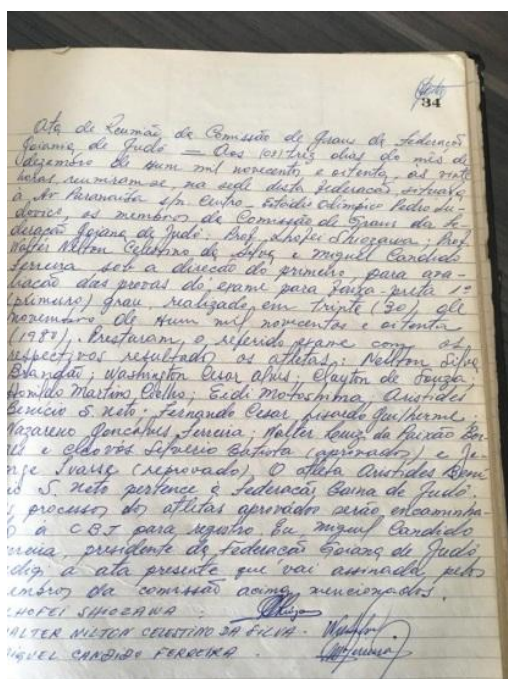 34
Ata de Reunião da Comissão de Graus da Federação
Goiana de Judô — Aos (03) três dias do mês de
dezembro de Hum mil novecentos e oitenta, as vinte
horas, reuniram-se na sede desta federação, situada
à Av. Paranaíba s/n. Centro - Estádio Olímpico Pedro Lu
dovico, os membros da Comissão de Graus da Fe-
deração Goiana de Judô: Prof. Lhofei Shiozawa; Prof.
Walter Nilton Celestino da Silva e Miguel Candido
Ferreira sob a direção do primeiro, para ava-
liação das provas do exame para faixa-preta 1º
(primeiro) grau, realizado em trinta (30) de
novembro de Hum mil novecentos e oitenta
(1980). Prestaram o referido exame com os
respectivos resultados os atletas: Nellton Silva
Brandão; Washington Cesar Alves; Clayton de Souza;
Martins Coelho; Eidi Motoshima, Aristides
Benicio S. Neto; Fernando Cesar Ricardo Guilherme;
Nazareno Gonçalves Ferreira; Walter Luiz da Paixão Bor-
e Clóvis Silvério Batista (aprovados) e
(reprovado). O atleta Aristides Beni
S. Neto pertence à Federação Baina de Judô.
processos dos atletas aprovados serão encaminha-
à CBJ para registro. Eu, Miguel Candido
presidente da Federação Goiana de Judô
a ata presente que vai assinada pelos
da comissão acima mencionados.
LHOFEI SHIOZAWA.
ALTER NILTON CELESTINO DA SILVA.
IGUEL CANDIDO FERREIRA.